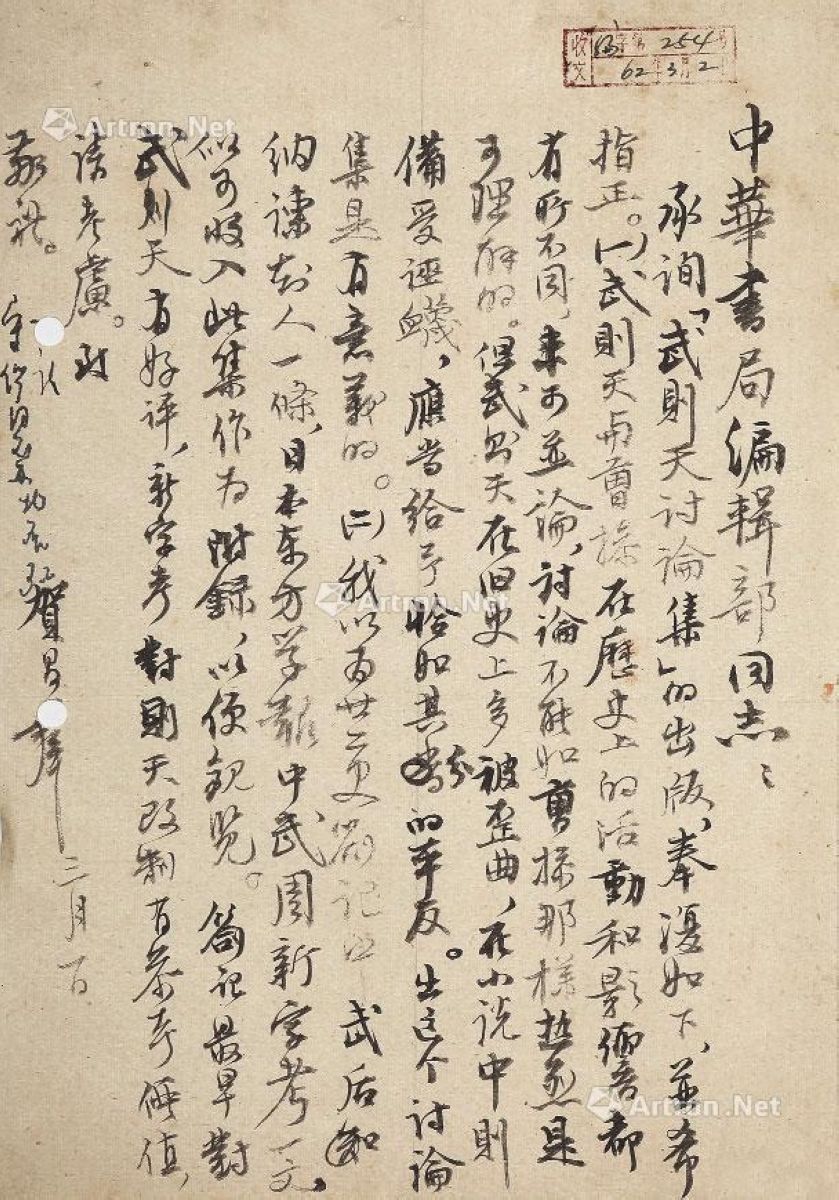 收文 字第254号
62年3月2日
中華書局編輯部同志：
承詢「武則天討論集」的出版，奉復如下，並希
指正。(一)武則天與曹操在歷史上的活動和影響都
有所不同，未可並論，討論不能如曹操那樣熱烈是
可理解的。但武則天在旧史上多被歪曲，在小说中則
備受誣衊，應当給予恰如其分的平反。出这个討論
集是有意義的。(二)我以为廿二史劄記中武后
納諫知人一條，日本东方学報中武周新字考一文，
似可收入此集作为附録，以便観览。劄記最早對
武則天有好評，新字考對則天改制有參考價值，
请考慮。致
敬礼。
賀昌群
三月一日
Artron.Net
Artron.Net
Artron.Net